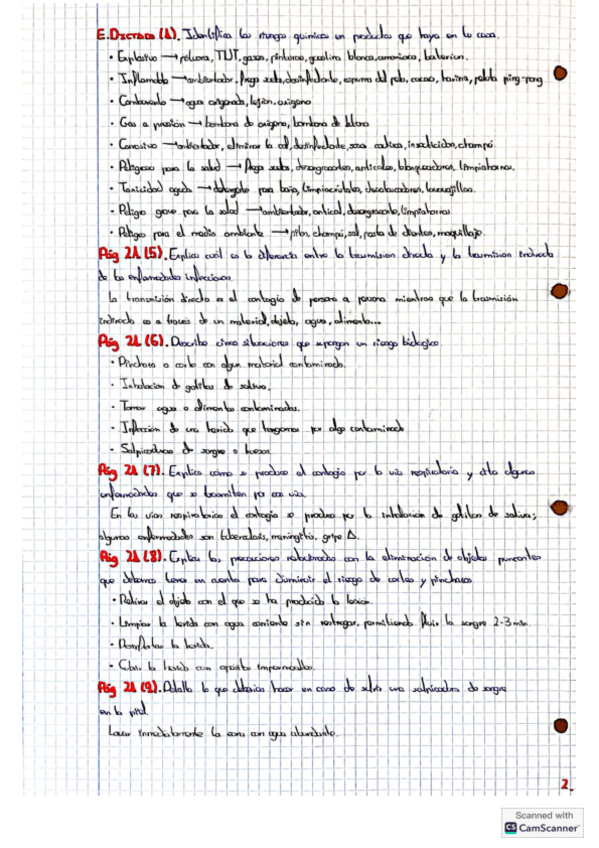 E.DICTADO (1). Identifica los riesgos químicos en productos que haya en tu casa.
· Explosivo → pólvora, TNT, gases, pinturas, gasolina blanca, amoniaco, baterías.
· Inflamable → ambientador, fregasuelos, desinfectante, espuma del pelo, cacao, harina, pelota ping-pong
· Comburente → agua oxigenada, lejía, oxígeno
· Gas a presión → bombona de oxígeno, bombona de butano
· Corrosivo → ambientador, eliminar la cal, desinfectante, sosa caústica, insecticidas, champú
· Peligroso para la salud → fregasuelos, desengrasantes, anticales, blanqueadores, limpiahornos.
· Toxicidad aguda → detergente para baño, limpiacristales, decolorantes, lavavajillas.
· Peligro grave para la salud → ambientador, antical, desengrasante, limpiahornos
· Peligro para el medio ambiente → pilas, champú, sal, pasta de dientes, maquillaje.
Pág 21 (5). Explica cuál es la diferencia entre la trasmisión directa y la trasmisión indirecta
de las enfermedades infecciosas.
La transmisión directa es el contagio de persona a persona mientras que la trasmisión
indirecta es a través de un material, objeto, agua, alimento...
Pág 21 (6). Describe cinco situaciones que supongan un riesgo biológico.
· Pinchazo o corte con algún material contaminado.
· Inhalación de gotitas de saliva.
· Tomar agua o alimentos contaminados.
· Infección de una herida que tengamos por algo contaminado
· Salpicaduras de sangre o heces.
Pág 21 (7). Explica cómo se produce el contagio por la vía respiratoria y cita algunas
enfermedades que se trasmiten por esa vía.
En las vías respiratorias el contagio se produce por la inhalación de gotitas de saliva;
algunas enfermedades son tuberculosis, meningitis, gripe A.
Pág 21 (8). Explica las precauciones relacionadas con la eliminación de objetos punzantes
que debemos tener en cuenta para disminuir el riesgo de cortes y pinchazos
· Retirar el objeto con el que se ha producido la lesión.
· Limpiar la herida con agua corriente sin restregar, permitiendo fluir la sangre 2-3 min.
· Desinfectar la herida.
· Cubrir la herida con apósito impermeable.
Pág 21 (9). Detalla lo que deberías hacer en caso de sufrir una salpicadura de sangre
en la piel.
Lavar inmediatamente la zona con agua abundante.
2.
Scanned with
CS CamScanner